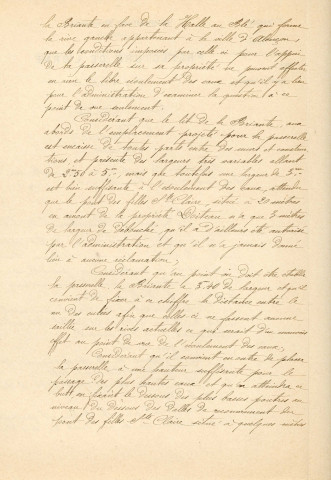 la Briante en face de la Halle au Blé qui forme
la rive gauche appartenant à la ville d'Alençon,
que les conditions imposées par celle-ci pour l'appui
de la passerelle sur sa propriété ne peuvent affecter
en rien le libre écoulement des eaux et qu'il y a lieu
pour l'administration d'examiner la question à ce
point de vue seulement.
Considérant que le lit de la Briante, aux
abords de l'emplacement projeté pour la passerelle
est encaissé de toutes parts entre des murs et construc-
tions et présente des largeurs très variables allant
de 2m50 à 5m, mais que toutefois une largeur de 3m
est bien suffisante à l'écoulement des eaux, attendu
que le pont des filles Ste Claire, situé à 20 mètres
en amont de la propriété n'a que 3 mètres
de largeur de débouché, qu'il a d'ailleurs été autorisé
par l'administration et qu'il n'a jamais donné
lieu à aucune réclamation;
Considérant qu'au point où doit être établie
la passerelle, la Briante a 3.40 de largeur et qu'il
convient de fixer à ce chiffre la distance entre le
nu des culées afin que celles-ci ne fassent aucune
saillie sur les rives actuelles ce qui serait d'un mauvais
effet au point de vue de l'écoulement des eaux;
Considérant qu'il convient en outre de placer
la passerelle à une hauteur suffisante pour le
passage des plus hautes eaux et qu'on atteindra ce
but en fixant le dessous des plus basses poutres au
niveau du dessous des dalles de recouvrement du
pont des filles Ste Claire, situé à quelques mètres